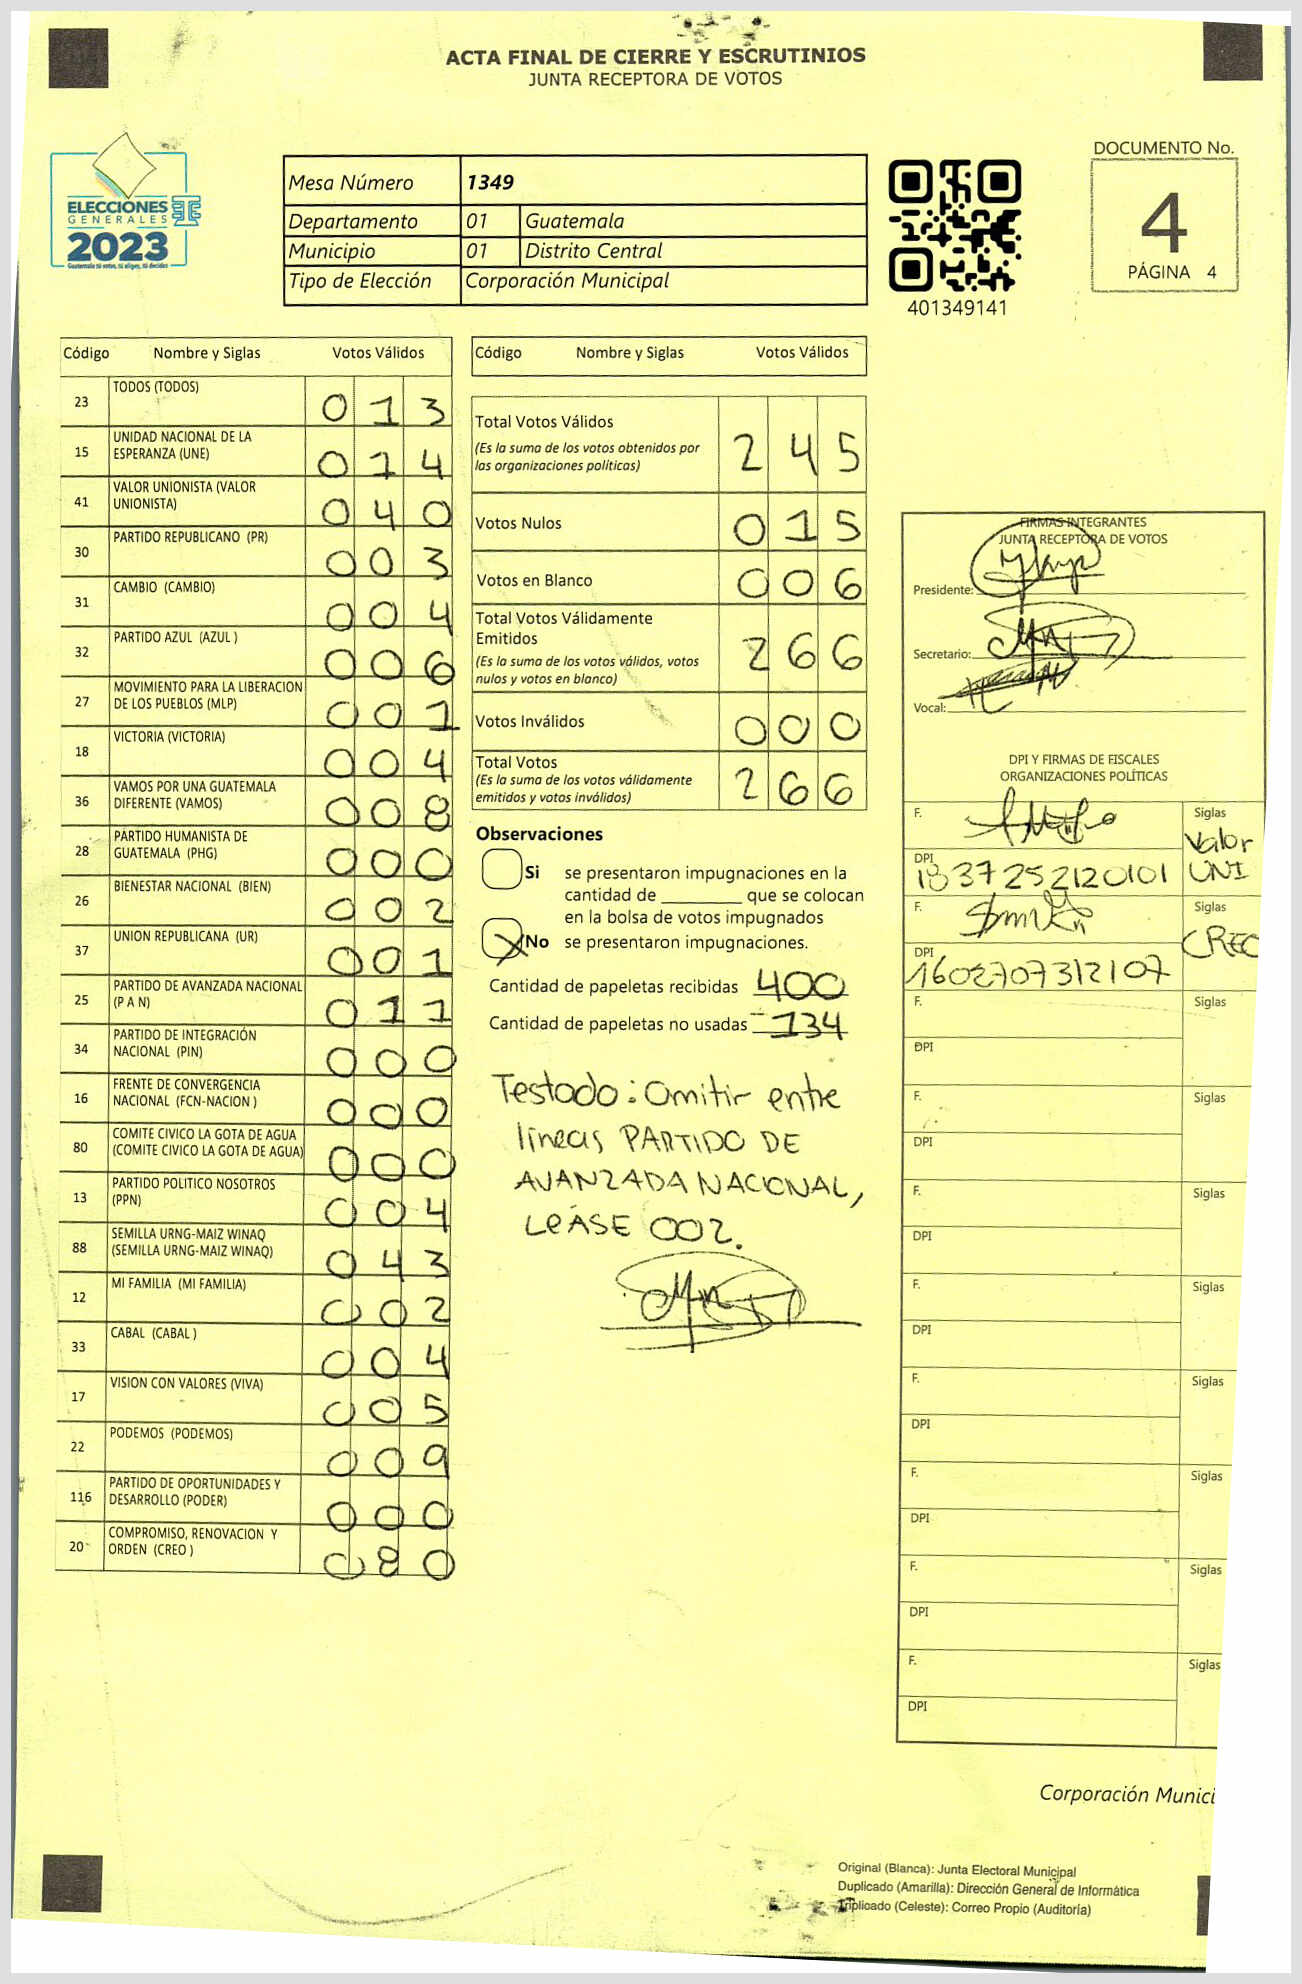 ACTA FINAL DE CIERRE Y ESCRUTINIOS
JUNTA RECEPTORA DE VOTOS
ELECCIONES
GENERALES
2023
Guatemala tú votas, tú eliges, tú decides
Mesa Número 1349
Departamento 01 Guatemala
Municipio 01 Distrito Central
Tipo de Elección Corporación Municipal
401349141
DOCUMENTO No.
4
PÁGINA 4
Código Nombre y Siglas Votos Válidos
23 TODOS (TODOS) 013
15 UNIDAD NACIONAL DE LA ESPERANZA (UNE) 014
41 VALOR UNIONISTA (VALOR UNIONISTA) 040
30 PARTIDO REPUBLICANO (PR) 003
31 CAMBIO (CAMBIO) 004
32 PARTIDO AZUL (AZUL ) 006
27 MOVIMIENTO PARA LA LIBERACION DE LOS PUEBLOS (MLP) 001
18 VICTORIA (VICTORIA) 004
36 VAMOS POR UNA GUATEMALA DIFERENTE (VAMOS) 008
28 PARTIDO HUMANISTA DE GUATEMALA (PHG) 000
26 BIENESTAR NACIONAL (BIEN) 002
37 UNION REPUBLICANA (UR) 001
25 PARTIDO DE AVANZADA NACIONAL (P A N) 011
34 PARTIDO DE INTEGRACIÓN NACIONAL (PIN) 000
16 FRENTE DE CONVERGENCIA NACIONAL (FCN-NACION ) 000
80 COMITE CIVICO LA GOTA DE AGUA (COMITE CIVICO LA GOTA DE AGUA) 000
13 PARTIDO POLITICO NOSOTROS (PPN) 004
88 SEMILLA URNG-MAIZ WINAQ (SEMILLA URNG-MAIZ WINAQ) 043
12 MI FAMILIA (MI FAMILIA) 002
33 CABAL (CABAL ) 004
17 VISION CON VALORES (VIVA) 005
22 PODEMOS (PODEMOS) 009
116 PARTIDO DE OPORTUNIDADES Y DESARROLLO (PODER) 000
20 COMPROMISO, RENOVACION Y ORDEN (CREO ) 080
Código Nombre y Siglas Votos Válidos
Total Votos Válidos 245
(Es la suma de los votos obtenidos por
las organizaciones políticas)
Votos Nulos 015
Votos en Blanco 006
Total Votos Válidamente
Emitidos 266
(Es la suma de los votos válidos, votos
nulos y votos en blanco)
Votos Inválidos 000
Total Votos 266
(Es la suma de los votos válidamente
emitidos y votos inválidos)
Observaciones
Si se presentaron impugnaciones en la
cantidad de ________ que se colocan
en la bolsa de votos impugnados
X No se presentaron impugnaciones.
Cantidad de papeletas recibidas 400
Cantidad de papeletas no usadas 134
Testado: Omitir entre
líneas PARTIDO DE
AVANZADA NACIONAL,
LEÁSE 002.
FIRMAS INTEGRANTES
JUNTA RECEPTORA DE VOTOS
Presidente:
Secretario:
Vocal:
DPI Y FIRMAS DE FISCALES
ORGANIZACIONES POLÍTICAS
F. Siglas
Valor
DPI 1837252120101 UNI
F. Siglas
CREO
DPI 1602707312107
F. Siglas
DPI
F. Siglas
DPI
F. Siglas
DPI
F. Siglas
DPI
F. Siglas
DPI
F. Siglas
DPI
F. Siglas
DPI
F. Siglas
DPI
Corporación Munici
Original (Blanca): Junta Electoral Municipal
Duplicado (Amarilla): Dirección General de Informática
Triplicado (Celeste): Correo Propio (Auditoría)